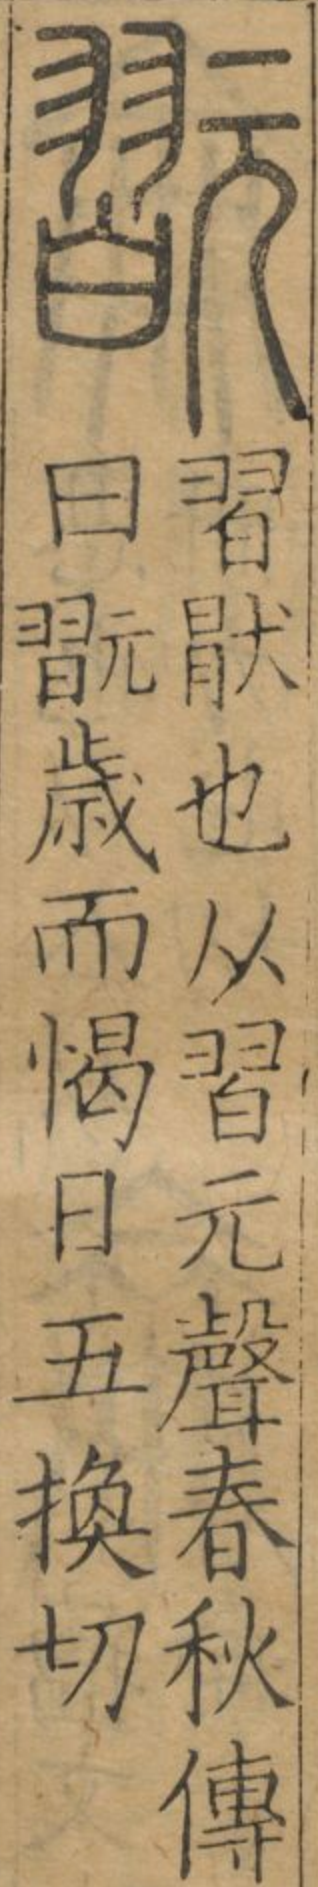 翫
習猒也从習元聲春秋傳
曰翫歳而愒日五換切